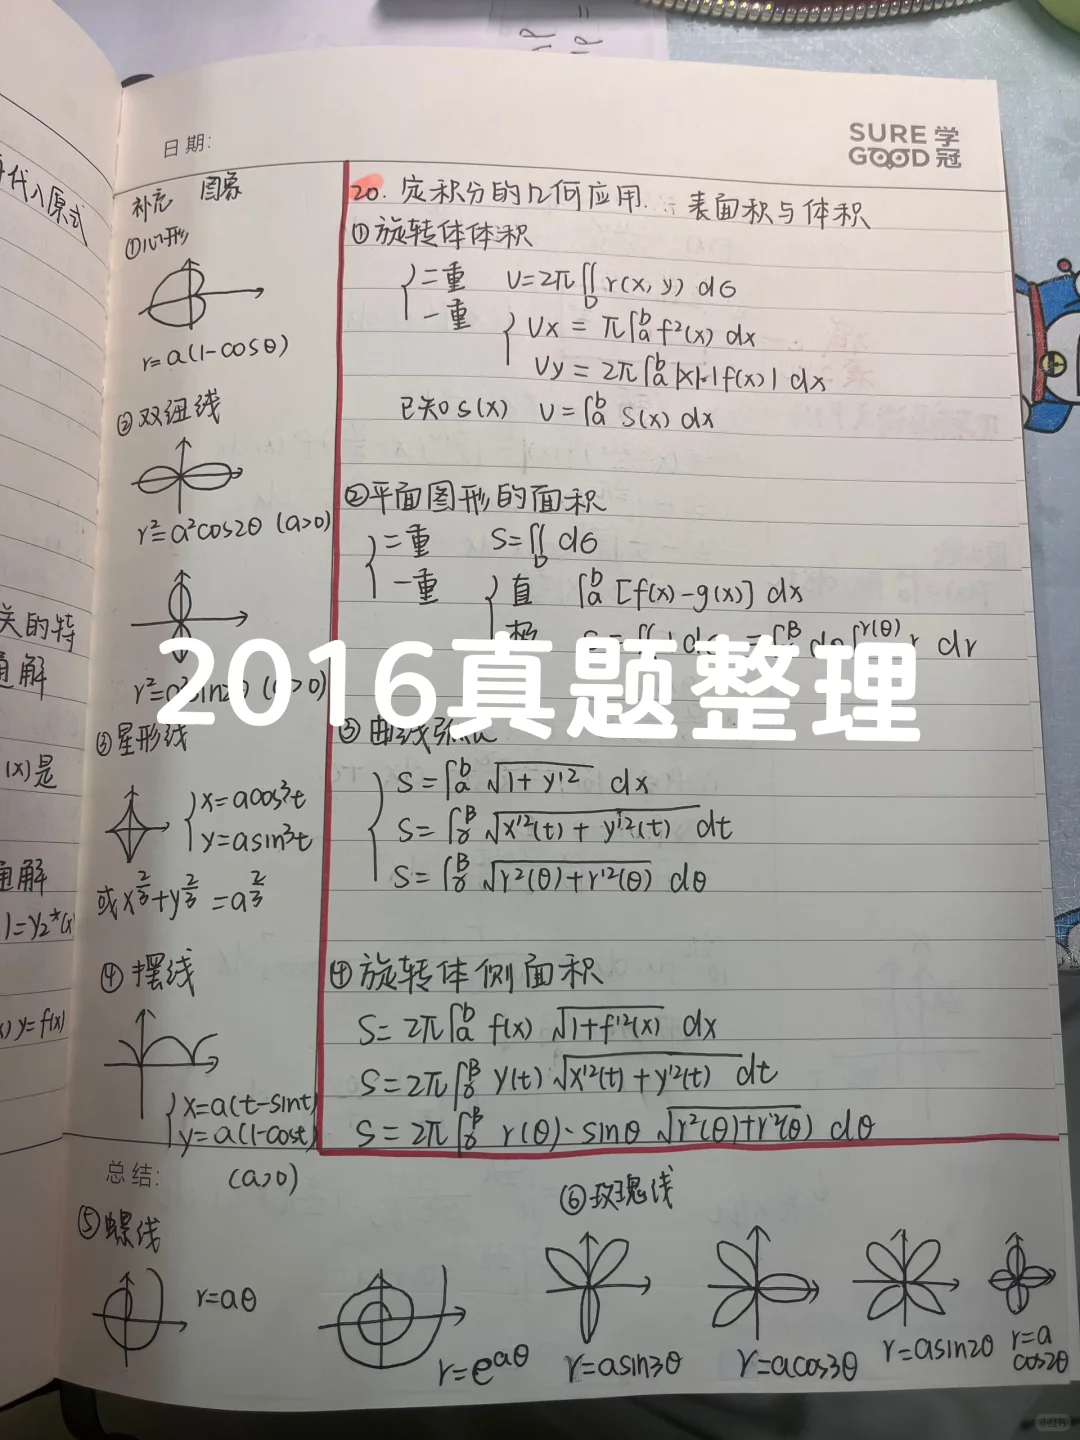 日期:
SURE 学
GOOD 冠
代入原式
关的特
通解
(x)是
通解
y=f(x)
补充 图象
①心形
r=a(1-cosθ)
②双纽线
r²=a²cos2θ (a>0)
r²=a²sin2θ (a>0)
③星形线
x=acos³t
y=asin³t
或x^{2/3}+y^{2/3}=a^{2/3}
④摆线
x=a(t-sint)
y=a(1-cost)
(a>0)
20. 定积分的几何应用. ∵ 表面积与体积
①旋转体体积
二重 V=2π∬_D r(x,y) dσ
一重
Vx = π∫_a^b f²(x) dx
Vy = 2π∫_a^b |x|·|f(x)| dx
已知S(x) V=∫_a^b S(x) dx
②平面图形的面积
二重 S=∬_D dσ
一重 直 ∫_a^b [f(x)-g(x)] dx
r(θ) r dr
2016真题整理
③曲线弧
S=∫_a^b √(1+y'²) dx
S=∫_α^β √(x'²(t)+y'²(t)) dt
S=∫_α^β √(r²(θ)+r'²(θ)) dθ
④旋转体侧面积
S=2π∫_a^b f(x) √(1+f'²(x)) dx
S=2π∫_α^β y(t) √(x'²(t)+y'²(t)) dt
S=2π∫_α^β r(θ)·sinθ √(r²(θ)+r'²(θ)) dθ
总结:
⑤螺线
r=aθ
r=e^{aθ}
⑥玫瑰线
r=asin3θ
r=acos3θ
r=asin2θ
r=a
cos2θ
小红书